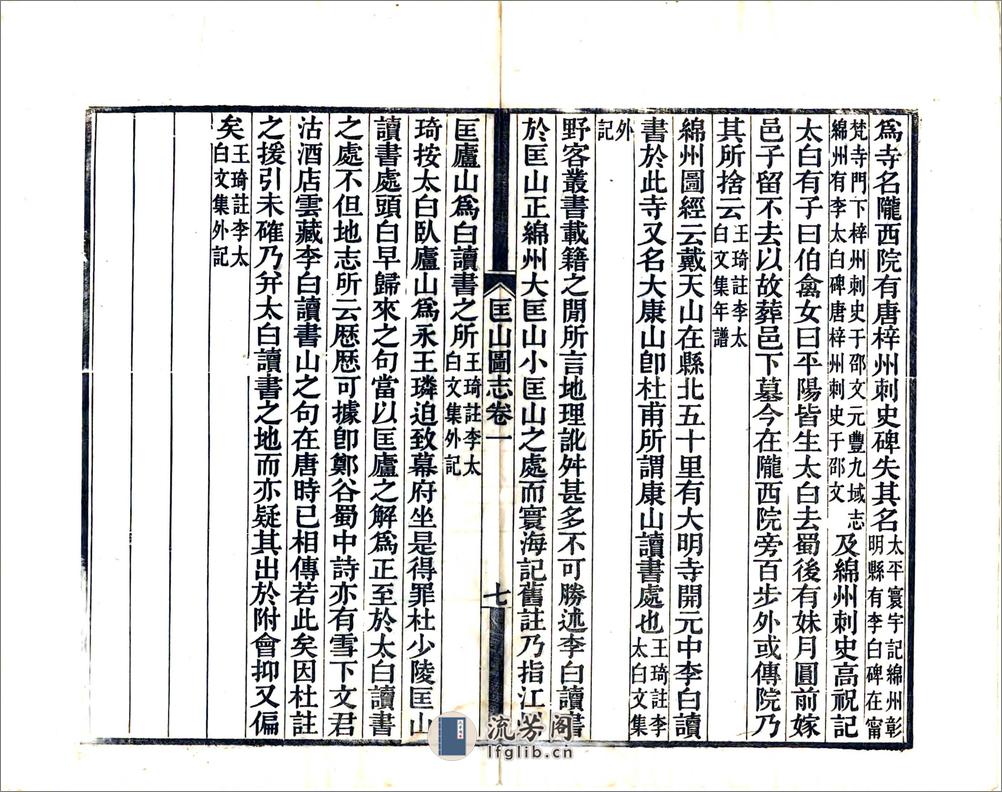 爲寺名隴西院有唐梓州刺史碑失其名太平寰宇記綿州彰明縣有李白碑在甯
梵寺門下梓州刺史于邵文元豐九域志綿州有李太白碑唐梓州刺史于邵文及綿州刺史高祝記
太白有子曰伯禽女曰平陽皆生太白去蜀後有妹月圓前嫁
邑子留不去以故葬邑下墓今在隴西院旁百步外或傳院乃
其所捨云王琦註李太白文集年譜
綿州圖經云戴天山在縣北五十里有大明寺開元中李白讀
書於此寺又名大康山卽杜甫所謂康山讀書處也王琦註李太白文集
外記
野客叢書載籍之閒所言地理訛舛甚多不可勝述李白讀書
於匡山正綿州大匡山小匡山之處而寰海記舊註乃指江
匡山圖志卷一
七
匡廬山爲白讀書之所王琦註李太白文集外記
琦按太白臥廬山爲永王璘迫致幕府坐是得罪杜少陵匡山
讀書處頭白早歸來之句當以匡廬之解爲正至於太白讀書
之處不但地志所云歷歷可據卽鄭谷蜀中詩亦有雪下文君
沽酒店雲藏李白讀書山之句在唐時已相傳若此矣因杜註
之援引未確乃幷太白讀書之地而亦疑其出於附會抑又偏
矣王琦註李太白文集外記
流芳阁
lfglib.cn